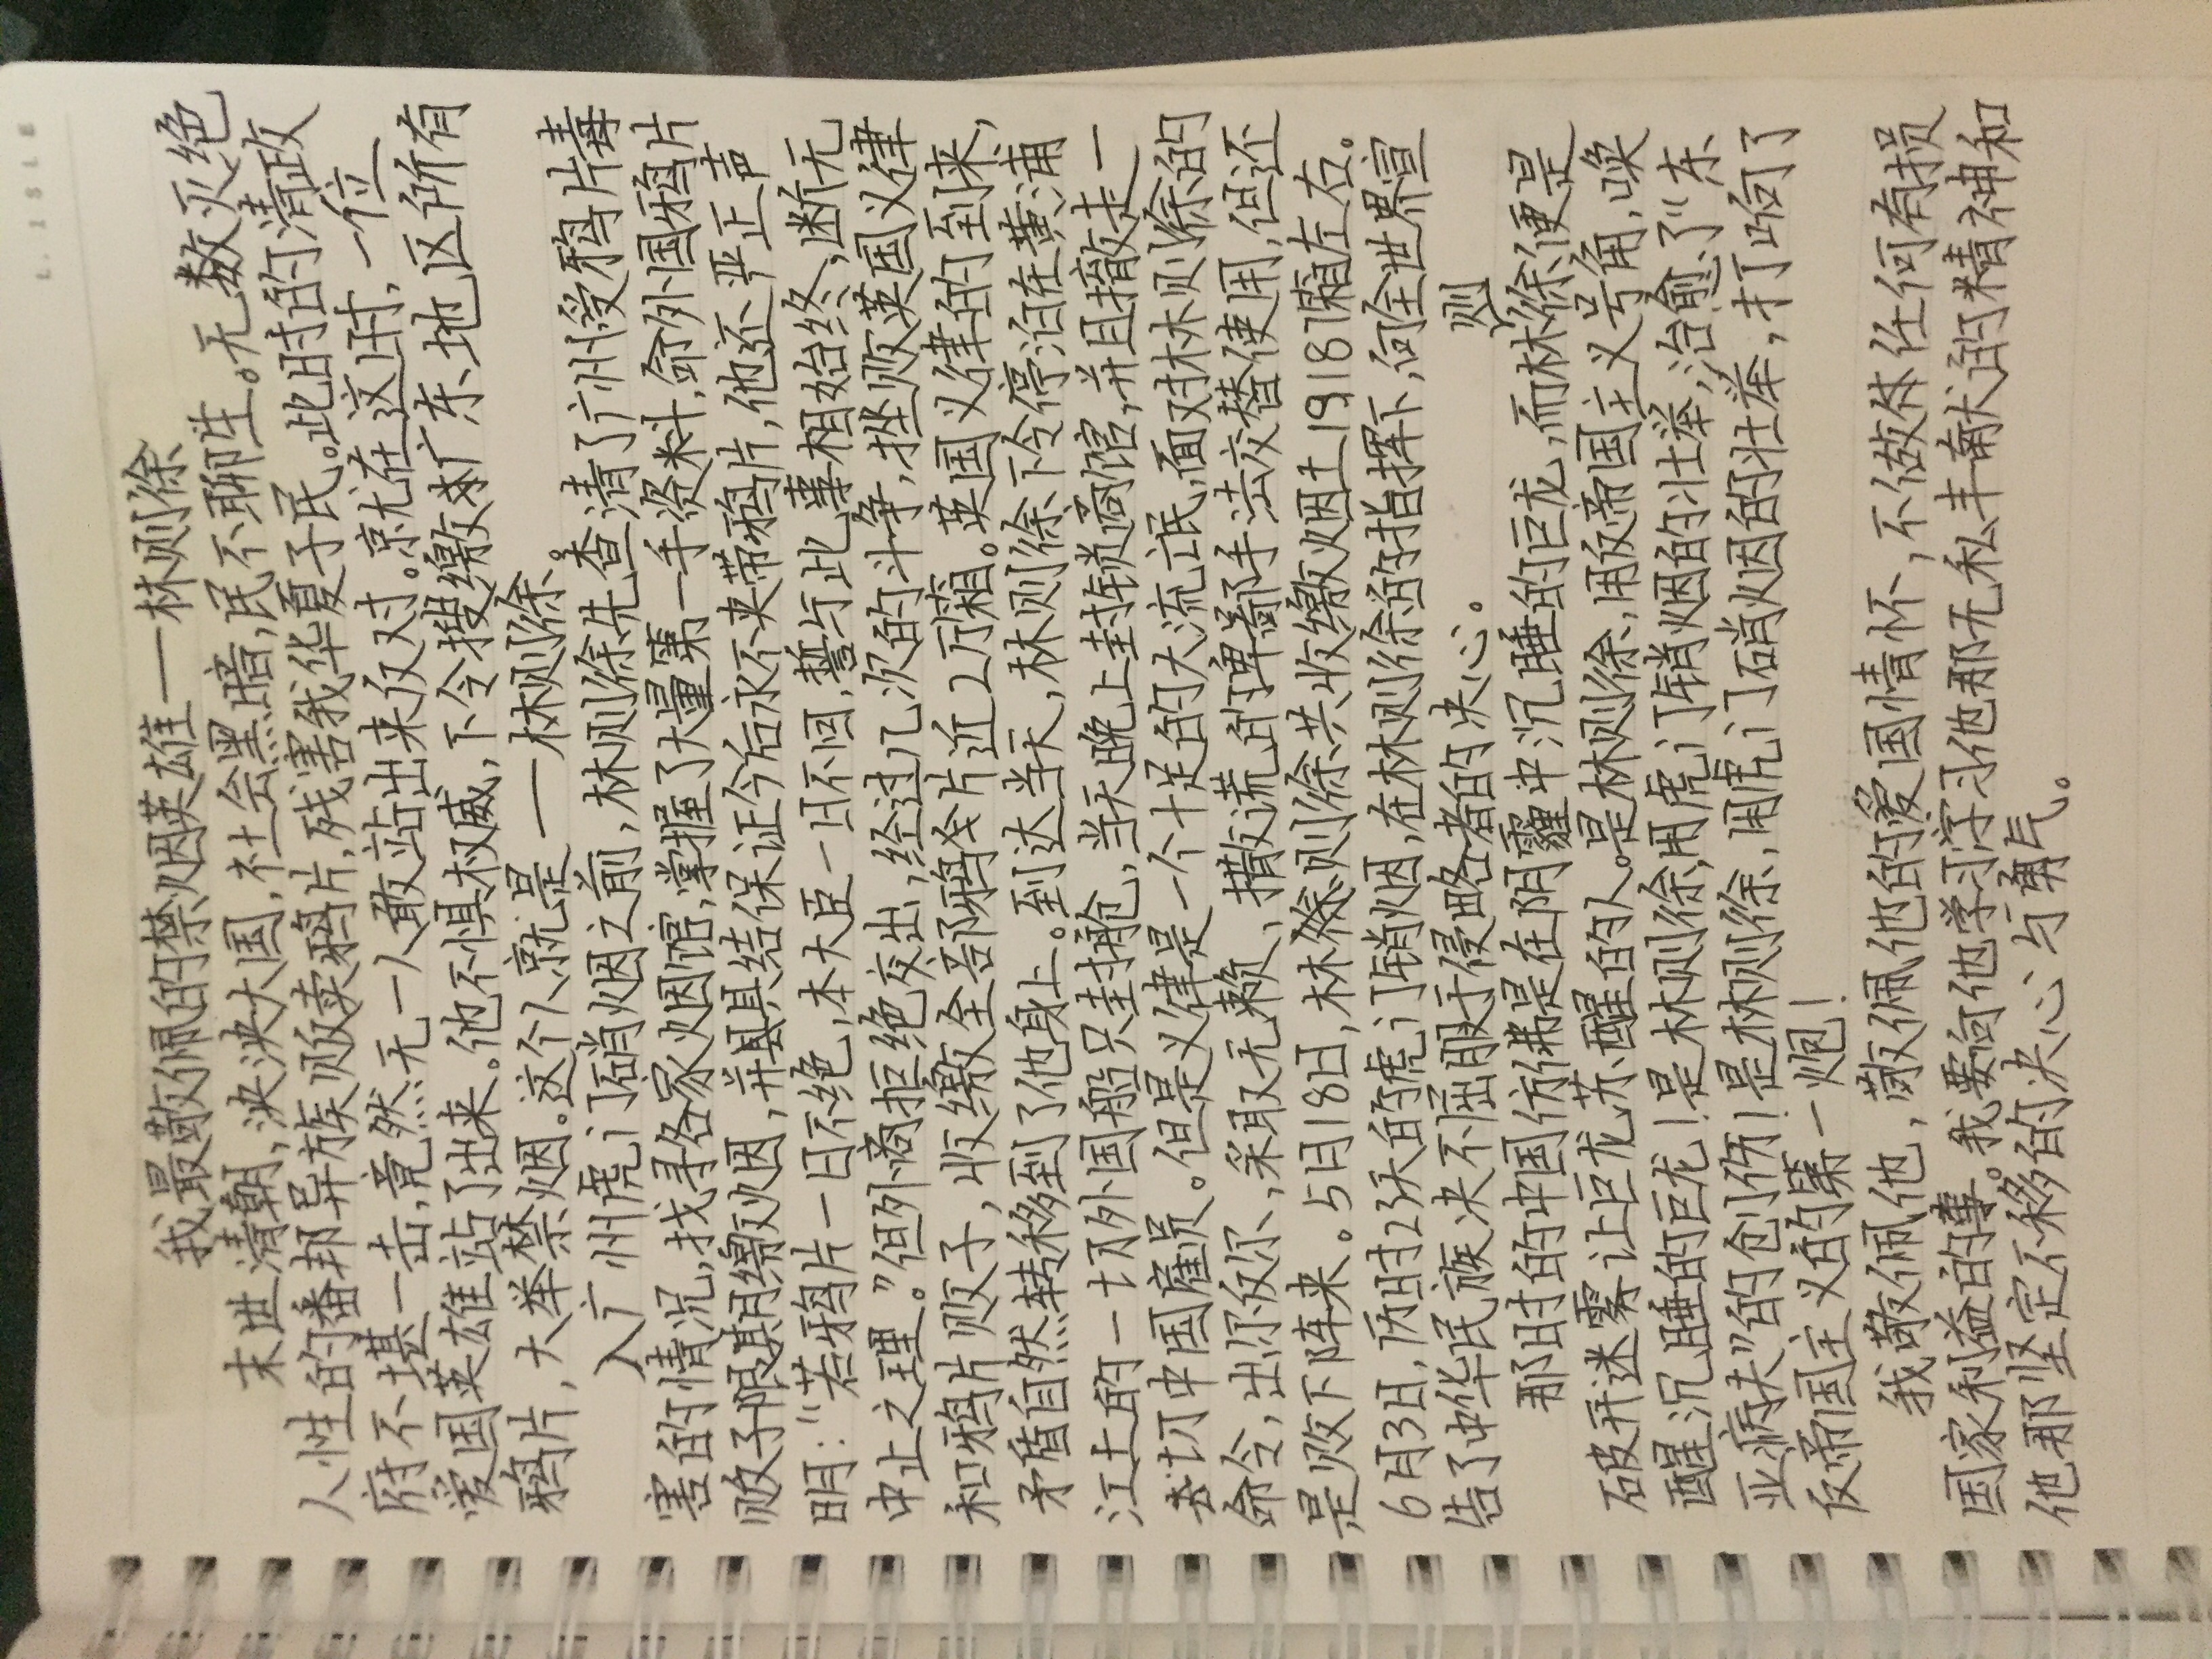 L. ISLE
我最敬佩的禁烟英雄——林则徐
末世清朝,泱泱大国,社会黑暗,民不聊生。无数灭绝
人性的番邦异族贩卖鸦片,残害我华夏子民。此时的清政
府不堪一击,竟然无一人敢站出来反对。就在这时,一位
爱国英雄站了出来。他不惧权威,下令搜缴广东地区所有
鸦片,大举禁烟。这个人就是——林则徐。
入广州虎门硝烟之前,林则徐先查清了广州受鸦片毒
害的情况,找寻各家烟馆,掌握了大量第一手资料,命外国鸦片
贩子限期缴烟,并具结保证今后永不夹带鸦片,他还严正声
明:“若鸦片一日不绝,本大臣一日不回,誓与此事相始终,断无
中止之理。”但外商拒绝交出,经过几次的斗争,挫败英国义律
和鸦片贩子,收缴全部鸦片近2万箱。英国义律的到来,
矛盾自然转移到了他身上。到达当天,林则徐下令停泊在黄浦
江上的一切外国船只封舱,当天晚上封锁商馆,并且撤走一
切中国雇员。但是义律是一个十足的大流氓,面对林则徐的
命令,出尔反尔,采取无赖、撒谎的卑鄙手法交替使用,但还
是败下阵来。5月18日,林则徐共收缴烟土19187箱左右。
6月3日,历时23天的虎门销烟,在林则徐的指挥下,向全世界宣
告了中华民族决不屈服于侵略者的决心。
那时的中国仿佛是在阴霾中沉睡的巨龙,而林则徐便是
破开迷雾让巨龙苏醒的人。是林则徐,用反帝国主义号角,唤
醒沉睡的巨龙!是林则徐,用虎门销烟的壮举,治愈了“东
亚病夫”的创伤!是林则徐,用虎门硝烟的壮举,打响了
反帝国主义的第一炮!
我敬佩他,敬佩他的爱国情怀,不做任何有损
国家利益的事。我要向他学习学习他那无私奉献的精神和
他那坚定不移的决心与勇气。